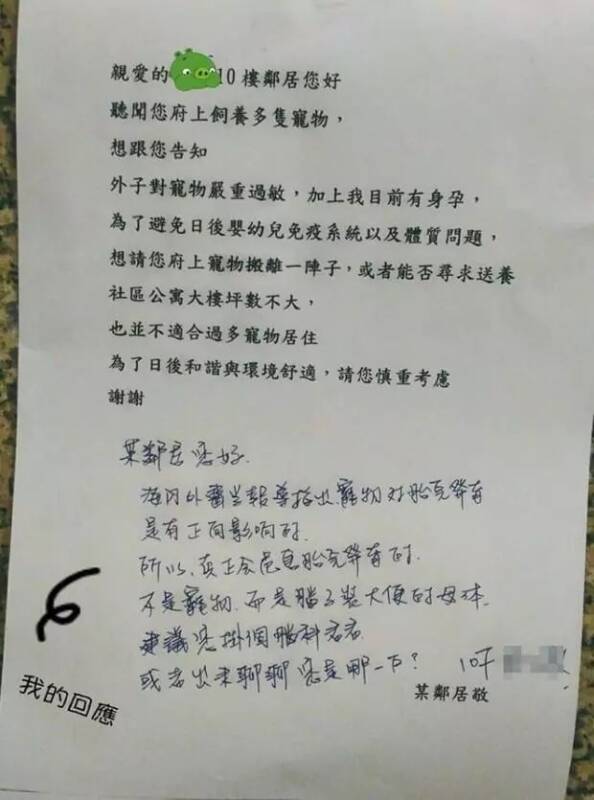 親愛的 10樓鄰居您好
聽聞您府上飼養多隻寵物，
想跟您告知
外子對寵物嚴重過敏，加上我目前有身孕，
為了避免日後嬰幼兒免疫系統以及體質問題，
想請您府上寵物搬離一陣子，或者能否尋求送養
社區公寓大樓坪數不大，
也並不適合過多寵物居住
為了日後和諧與環境舒適，請您慎重考慮
謝謝
某鄰居您好.
海內外醫生報導指出寵物对胎兒發育
是有正向影响的.
所以,真正会危息胎兒發育的.
不是寵物.而是腦子裝大便的母体.
建議您掛個腦科看看.
或者出來聊聊您是哪一下?
10F
某鄰居敬
我的回應